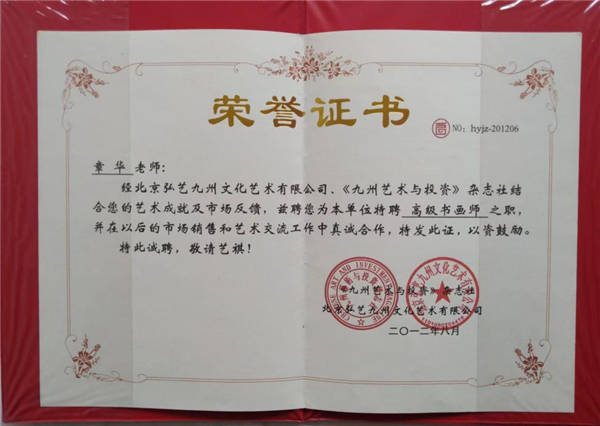 荣誉证书
NO：hyjz-201206
章华 老师：
经北京弘艺九州文化艺术有限公司、《九州艺术与投资》杂志社结
合您的艺术成就及市场反馈，兹聘您为本单位特聘 高级书画师 之职，
并在以后的市场销售和艺术交流工作中真诚合作，特发此证，以资鼓励。
特此诚聘，敬请艺祺！
《九州艺术与投资》杂志社
北京弘艺九州文化艺术有限公司
二〇一二年八月